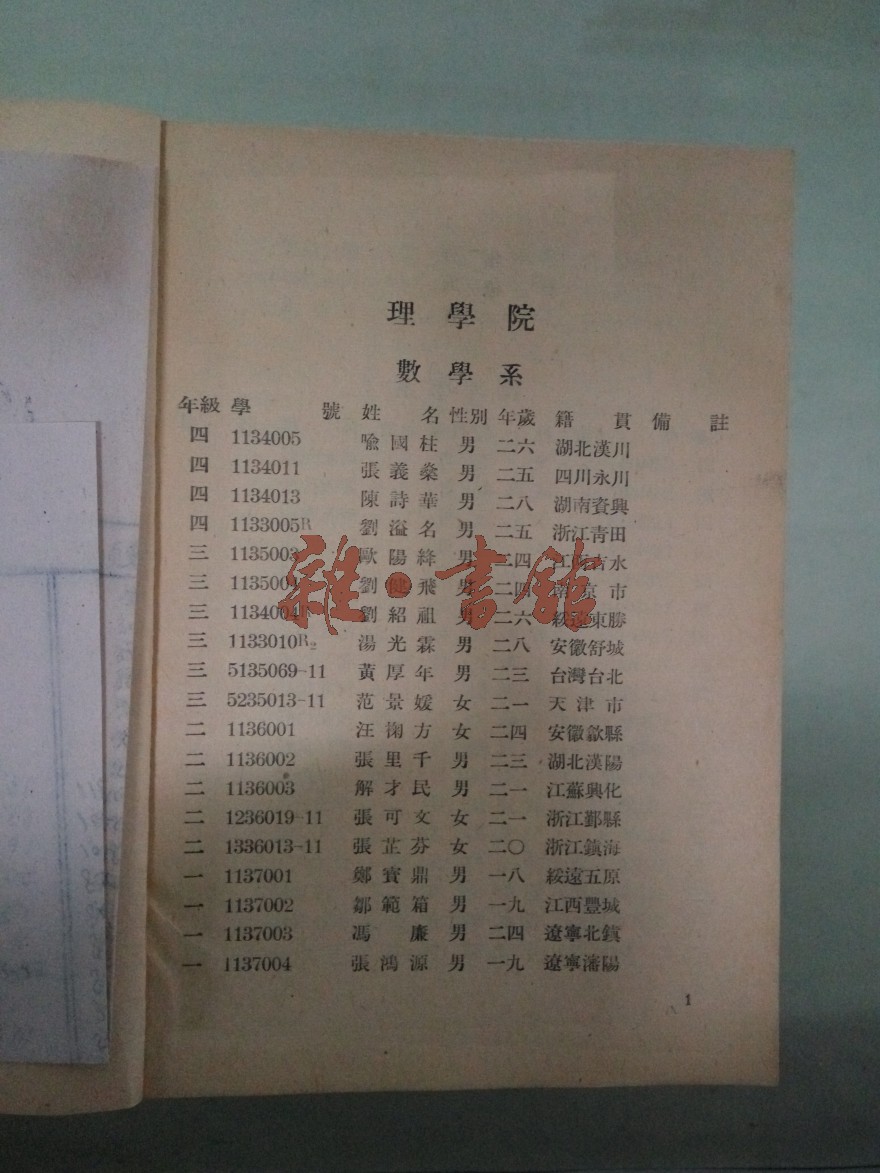 理學院
數學系
年級 學號 姓名 性別 年歲 籍貫 備註
四 1134005 喩國柱 男 二六 湖北漢川
四 1134011 張義燊 男 二五 四川永川
四 1134013 陳詩華 男 二八 湖南資興
四 1133005R 劉溢名 男 二五 浙江青田
三 1135003 歐陽絳 男 二四 江西吉水
三 1135004 劉健飛 男 二四 南京市
三 1134004R 劉紹祖 男 二六 綏遠東勝
三 1133010R₂ 湯光霖 男 二八 安徽舒城
三 5135069-11 黃厚年 男 二三 台灣台北
三 5235013-11 范景媛 女 二一 天津市
二 1136001 汪掬方 女 二四 安徽歙縣
二 1136002 張里千 男 二三 湖北漢陽
二 1136003 解才民 男 二一 江蘇興化
二 1236019-11 張可文 女 二一 浙江鄞縣
二 1336013-11 張芷芬 女 二〇 浙江鎮海
一 1137001 鄭寶鼎 男 一八 綏遠五原
一 1137002 鄒範箱 男 一九 江西豐城
一 1137003 馮廉 男 二四 遼寧北鎮
一 1137004 張鴻源 男 一九 遼寧瀋陽
1
雜·書館